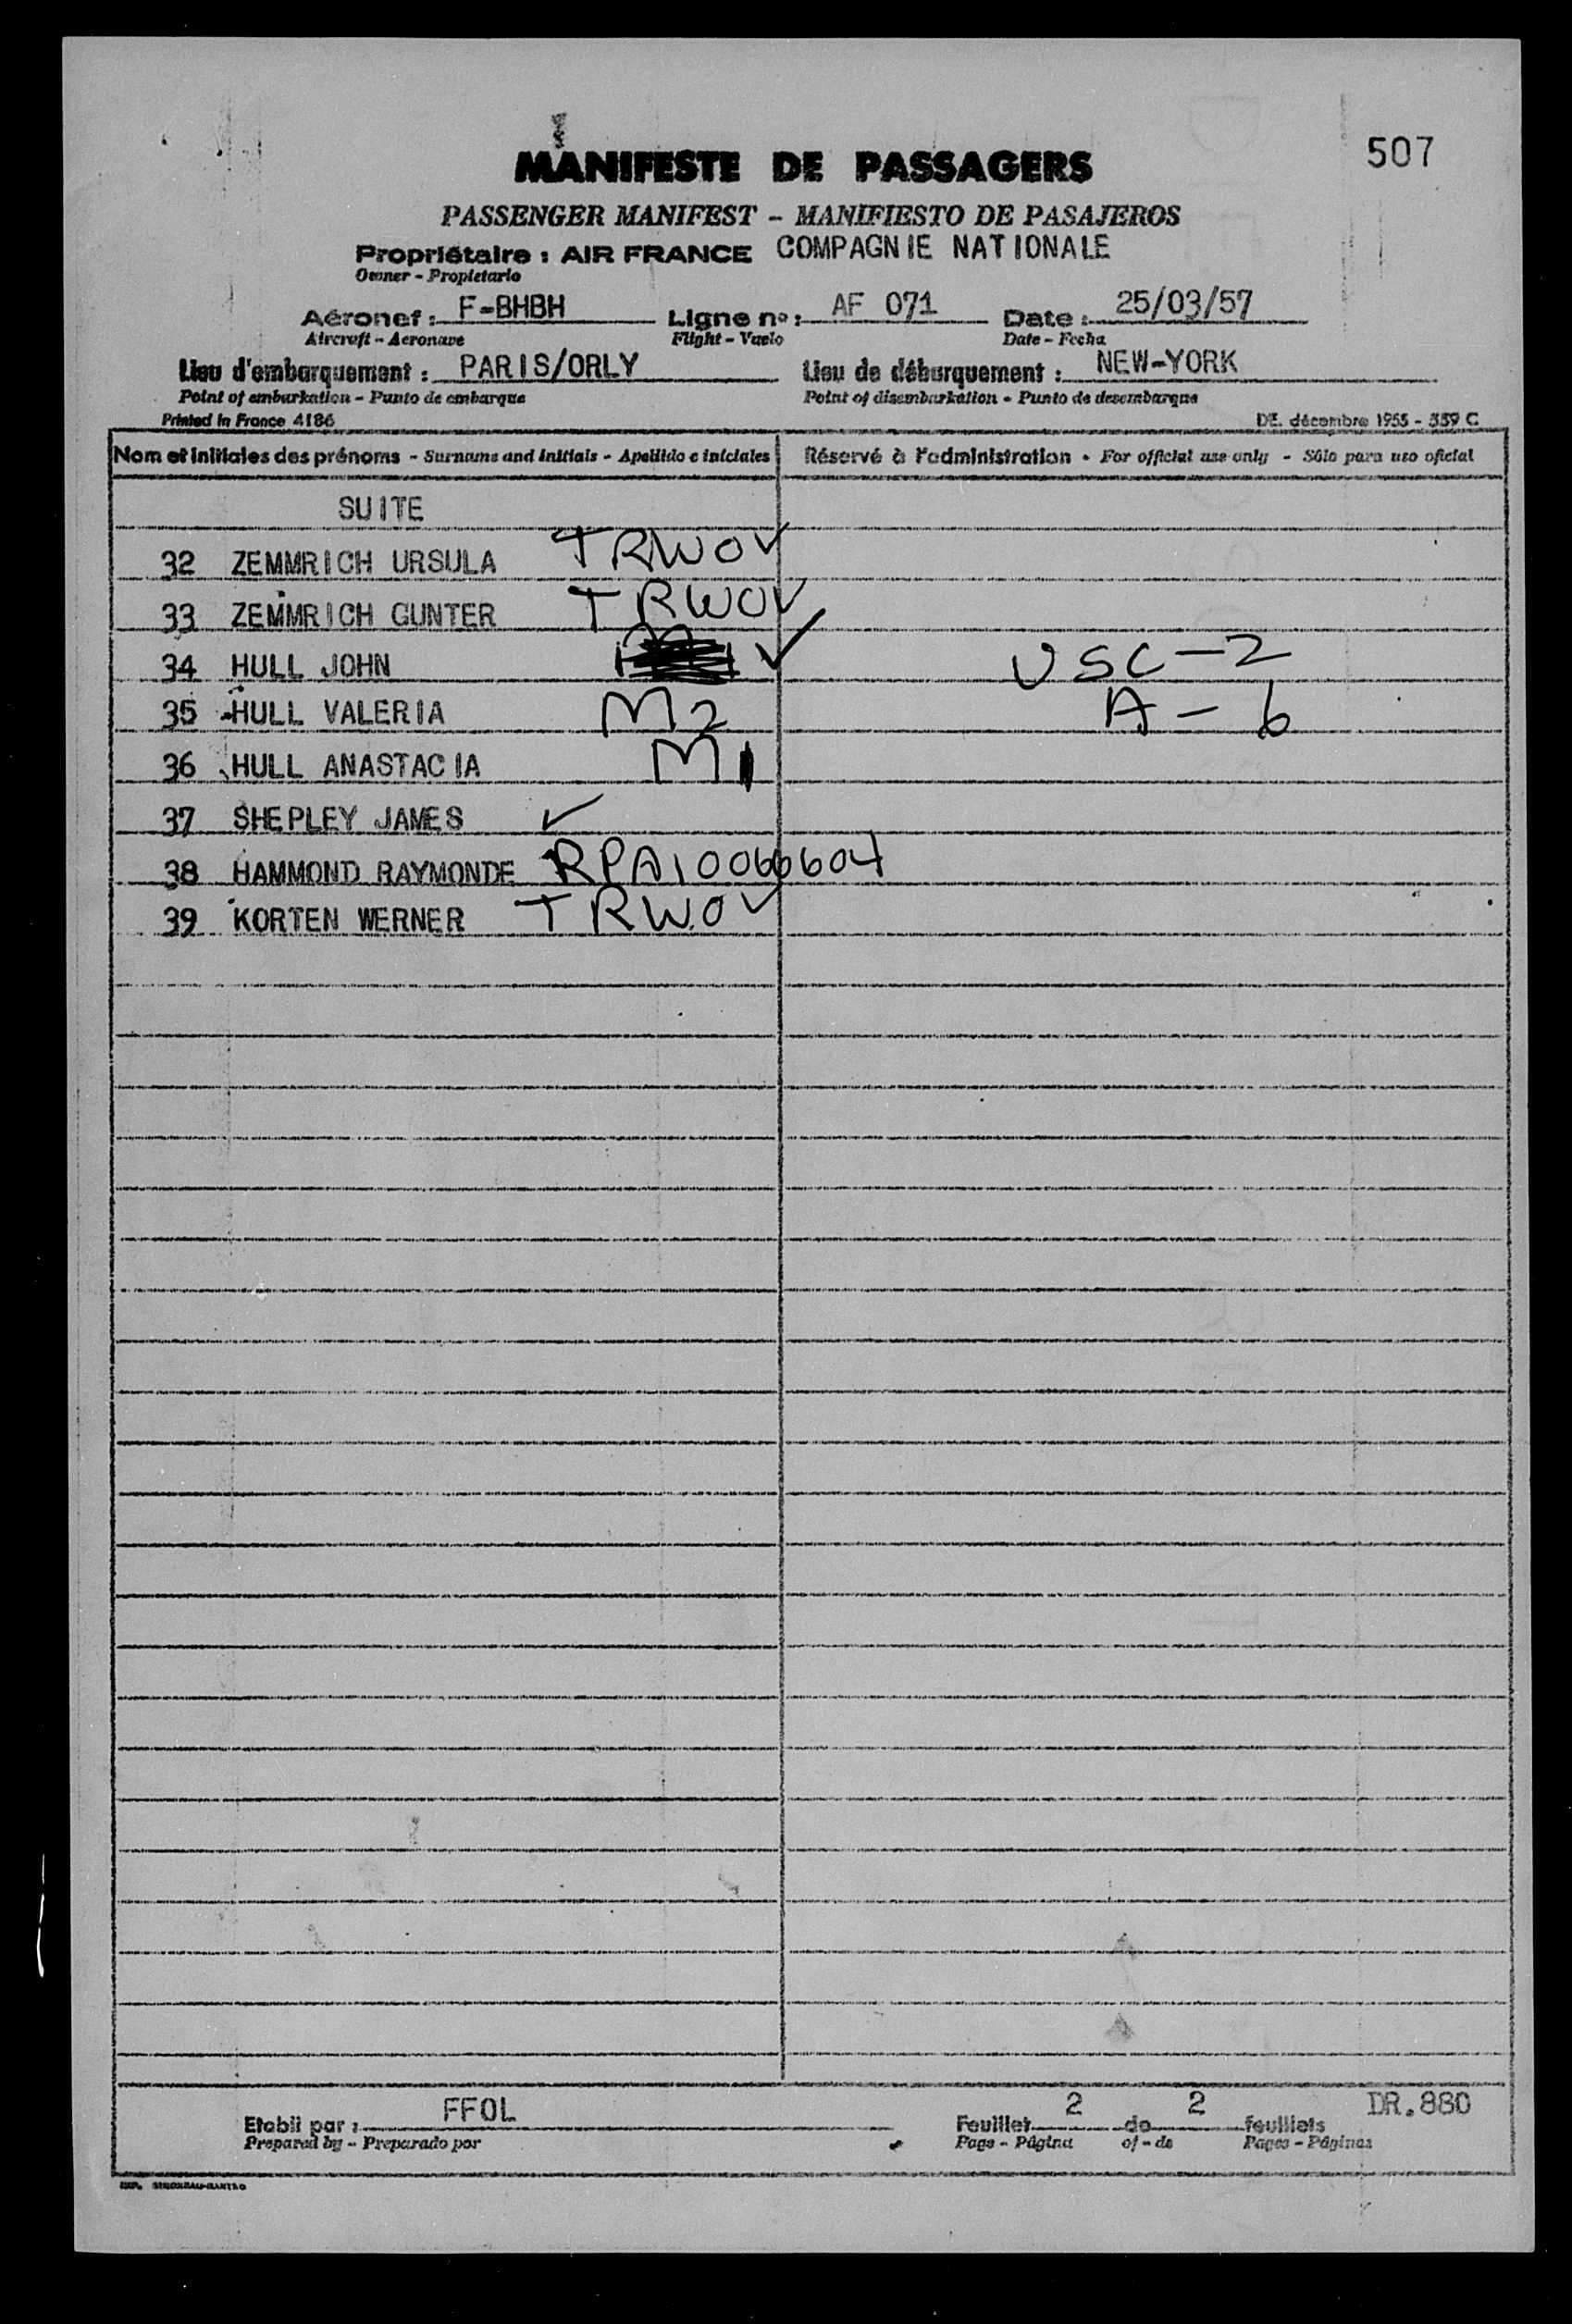 507
MANIFESTE DE PASSAGERS
PASSENGER MANIFEST - MANIFIESTO DE PASAJEROS
Propriétaire : AIR FRANCE COMPAGNIE NATIONALE
Owner - Propietario
Aéronef : F-BHBH Ligne nº : AF 071 Date : 25/03/57
Aircraft - Aeronave Flight - Vuelo Date - Fecha
Lieu d'embarquement : PARIS/ORLY Lieu de débarquement : NEW-YORK
Point of embarkation - Punto de embarque Point of disembarkation - Punto de desembarque
Printed in France 4186 DE. décembre 1955 - 559 C
Nom et initiales des prénoms - Surname and initials - Apellido e iniciales Réservé à l'administration - For official use only - Sólo para uso oficial
SUITE
32 ZEMMRICH URSULA TRWOV
33 ZEMMRICH GUNTER TRWOV
34 HULL JOHN ✓ USC-2
35 HULL VALERIA M2 A-6
36 HULL ANASTACIA M1
37 SHEPLEY JAMES ✓
38 HAMMOND RAYMONDE RPA10066604
39 KORTEN WERNER TRWOV
Etabli par : FFOL Feuillet 2 de 2 feuillets DR.880
Prepared by - Preparado por Page - Página of - de Pages - Páginas